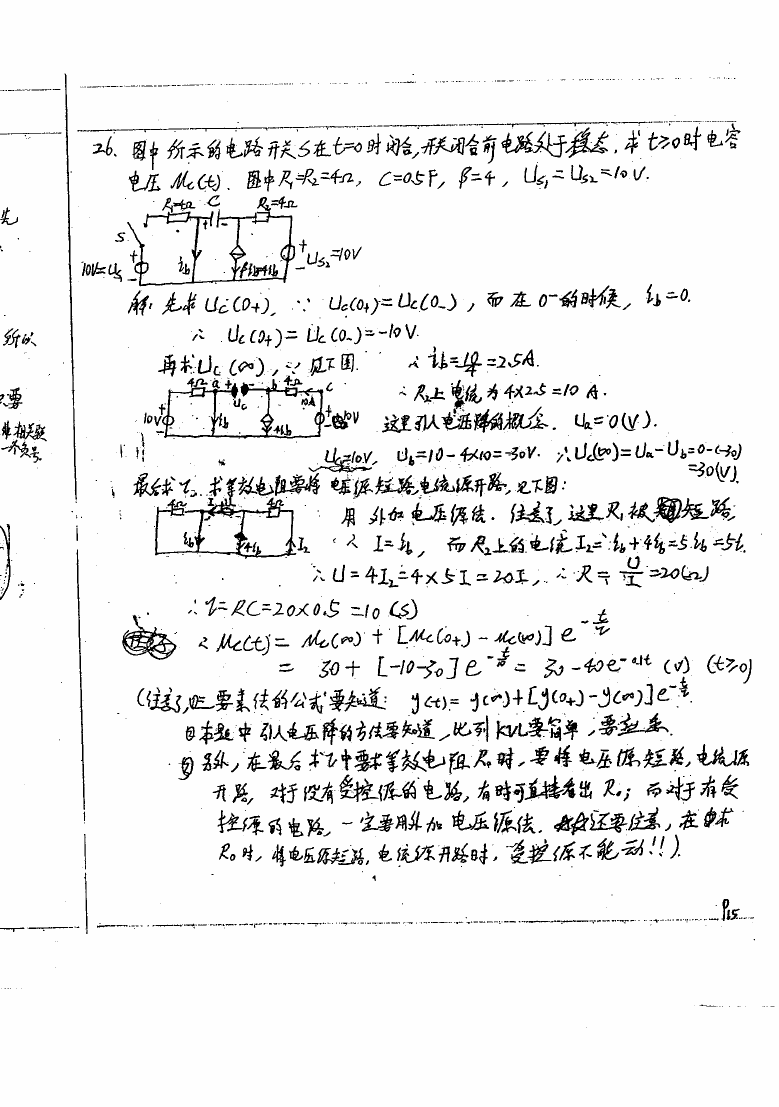 26、图中所示的电路开关S在t=0时闭合,开关闭合前电路处于稳态,求t≥0时电容
电压 Uc(t). 图中R₁=R₂=4Ω, C=0.5F, β=4, Us₁=Us₂=10V.
R₁=4Ω C R₂=4Ω
S
10V=Us₁ ib βib=4ib Us₂=10V
解: 先求Uc(0+), ∵ Uc(0+)=Uc(0-), 而在0-的时候, ib=0.
∴ Uc(0+)=Uc(0-)=-10V.
再求Uc(∞), 见下图. ∴ ib=10/4=2.5A.
4Ω a b 4Ω c ∴ R₂上电流为4×2.5=10A.
10V ib Uc 4ib 10A 10V 这里引入电压降的概念. Ua=0(V).
Uc=10V, Ub=10-4×10=-30V. ∴Uc(∞)=Ua-Ub=0-(-30)
=30(V).
最后求τ. 求等效电阻要将电压源短路,电流源开路,见下图:
4Ω 4Ω 用外加电压源法. 注意了,这里R₁被短路,
ib 4ib I₂ ∴ I=ib, 而R₂上的电流I₂=ib+4ib=5ib=5I.
∴U=4I₂=4×5I=20I, ∴R=U/I=20(Ω)
∴τ=RC=20×0.5=10(S)
∴ Uc(t)= Uc(∞)+[Uc(0+)-Uc(∞)]e^(-t/τ)
= 30+[-10-30]e^(-t/10) = 30-40e^(-0.1t) (V) (t≥0)
(注意了,三要素法的公式要知道: y(t)=y(∞)+[y(0+)-y(∞)]e^(-t/τ)
本题中引入电压降的方法要知道,比列KVL要简单,要
② 另外,在最后求τ中要求等效电阻R₀时,要将电压源短路,电流源
开路, 对于没有受控源的电路,有时可直接看出R₀; 而对于有受
控源的电路,一定要用外加电压源法. 还要注意,在求
R₀时,将电压源短路,电流源开路时,受控源不能动!!).
P15